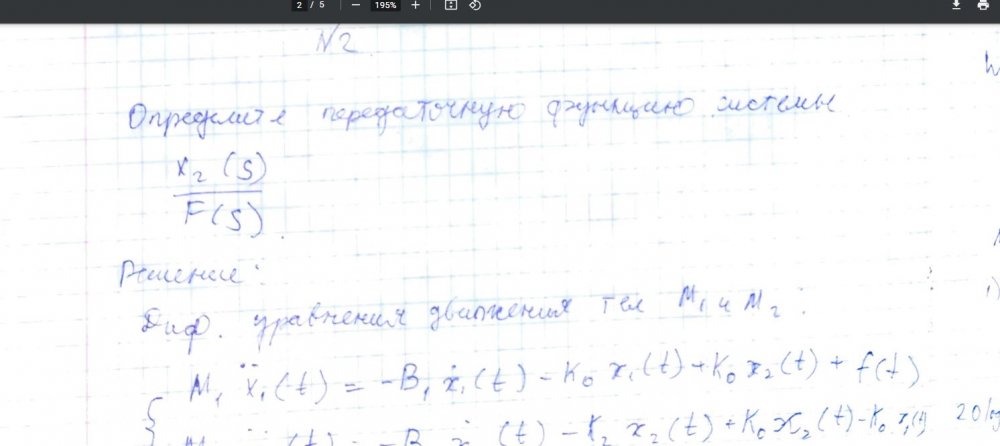 2 / 5 195%
N2
Определите передаточную функцию системы
X₂ (S)
F(S)
Решение:
Диф. уравнения движения тел M₁ и M₂:
M₁ ẍ₁(t) = -B₁ ẋ₁(t) - K₀ x₁(t) + K₀ x₂(t) + f(t)
(t) - K₂ x₂(t) + K₀ x₂(t) - K₀ x₁(t)
1)